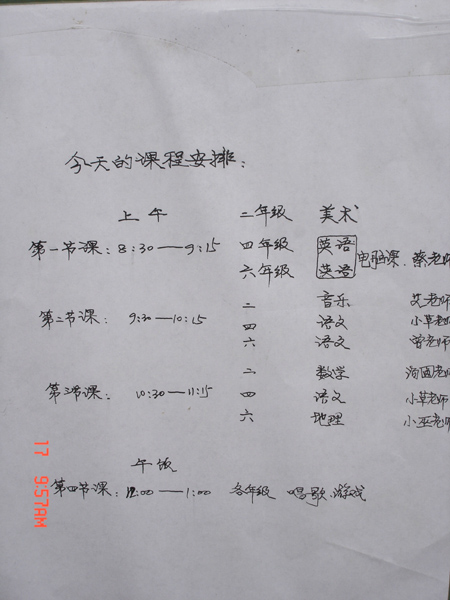 今天的课程安排：
上午 二年级 美术
第一节课：8:30——9:15 四年级 英语 电脑课．蔡老师
六年级 英语
二 音乐 艾老师
第二节课： 9:30—10:15 四 语文 小草老师
六 语文 曾老师
二 数学 老师
第三节课： 10:30—11:15 四 语文 小草老师
六 地理 小巫老师
午饭
第四节课：12:00——1:00 各年级 唱歌．游戏
17 9:57AM